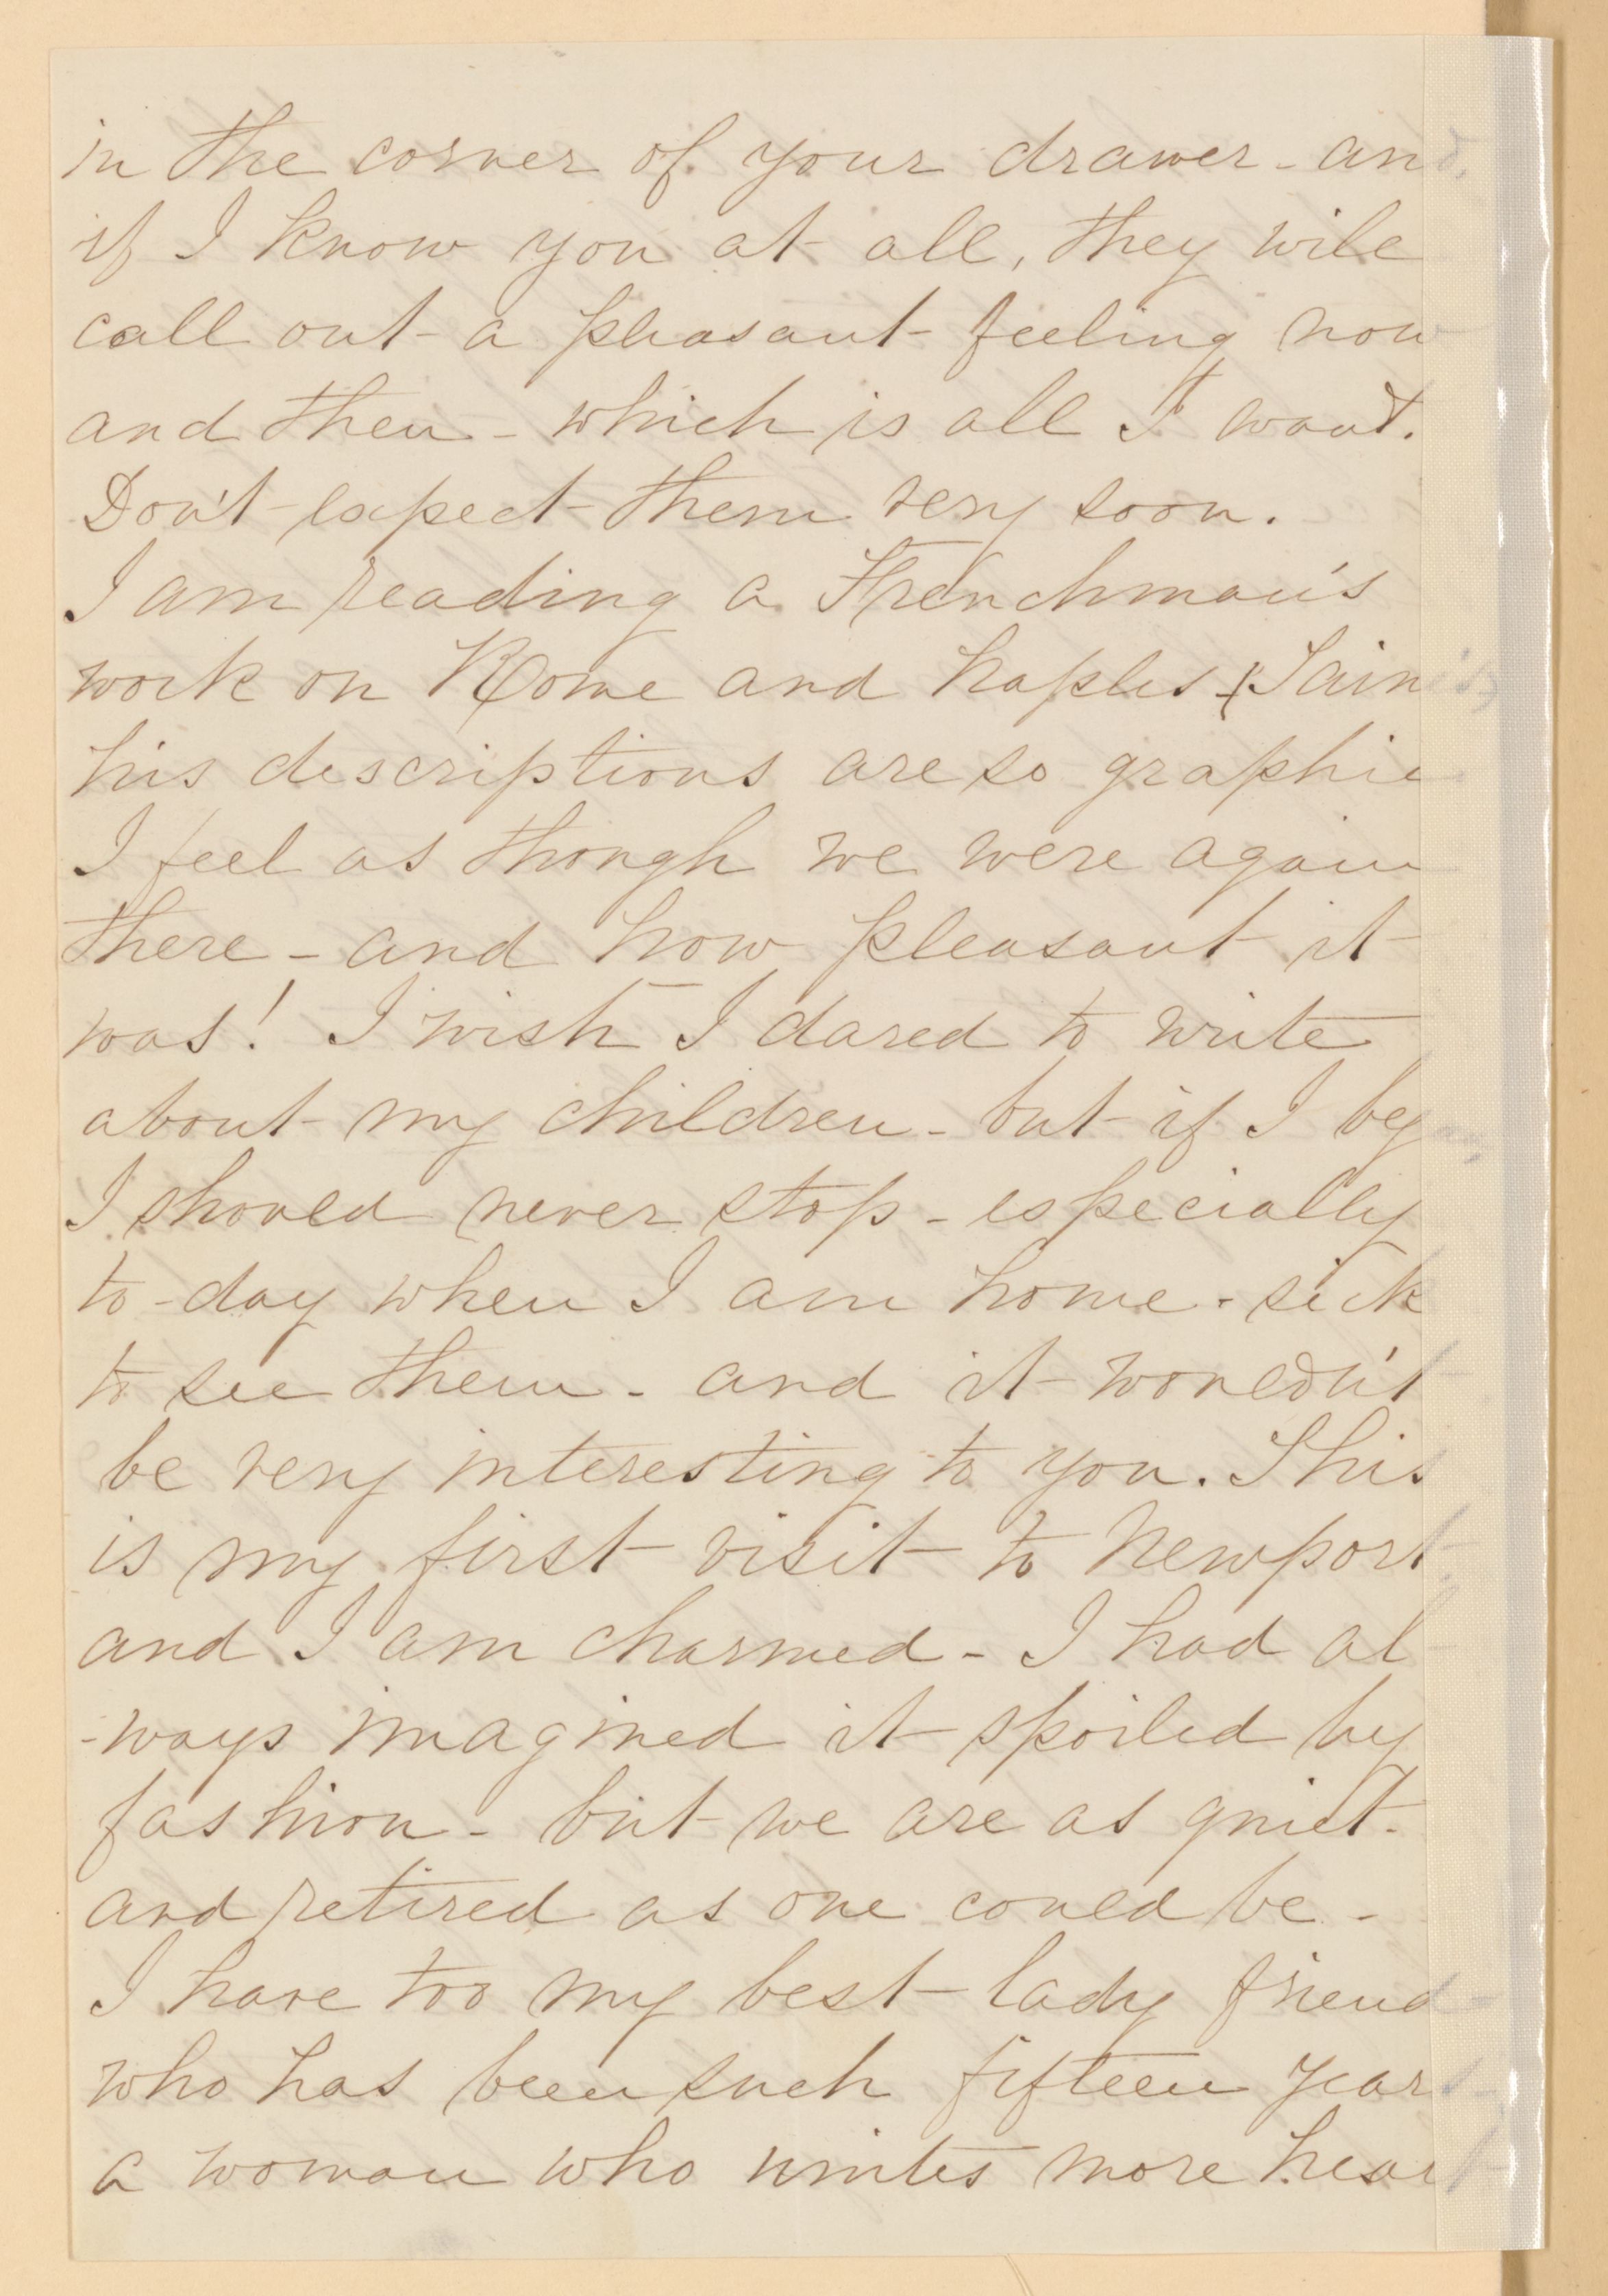 in the corner of your drawer - and,
if I know you at all, they will
call out a pleasant feeling now
and then - which is all I want.
Don't expect them very soon.
I am reading a Frenchman's
work on Rome and Naples - (Taine's)
his descriptions are so graphic
I feel as though we were again
there - and how pleasant it
was! I wish I dared to write
about my children - but if I began,
I should never stop - especially
to-day when I am home-sick
to see them - and it wouldn't
be very interesting to you. This
is my first visit to Newport
and I am charmed - I had al
-ways imagined it spoiled by
fashion - but we are as quiet
and retired as one could be -
I have too my best lady friend -
who has been such fifteen years -
a woman who unites more heart